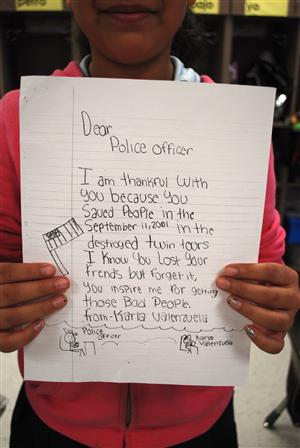 Dear
Police officer
I am thankful with
you because you
Saved People in the
September 11, 2001 in the
destroyed twin toors
I Know You Lost Your
frends but forget it,
You inspire me for getting
those Bad People.
from-Karla Valenzuela
Police
officer
Karla
Valenzuela